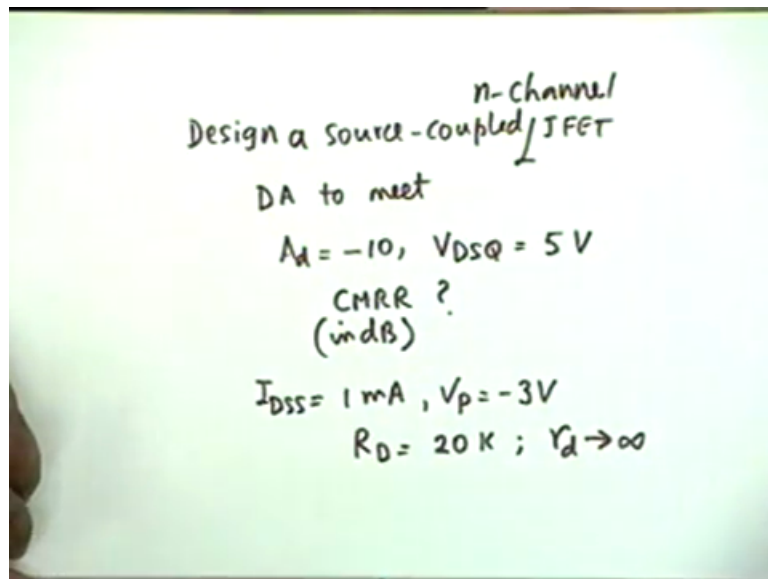 n-channel
Design a source-coupled JFET
DA to meet
Ad = -10, VDSQ = 5 V
CMRR ?
(in dB)
IDSS = 1 mA, Vp = -3V
RD = 20 K ; rd → ∞